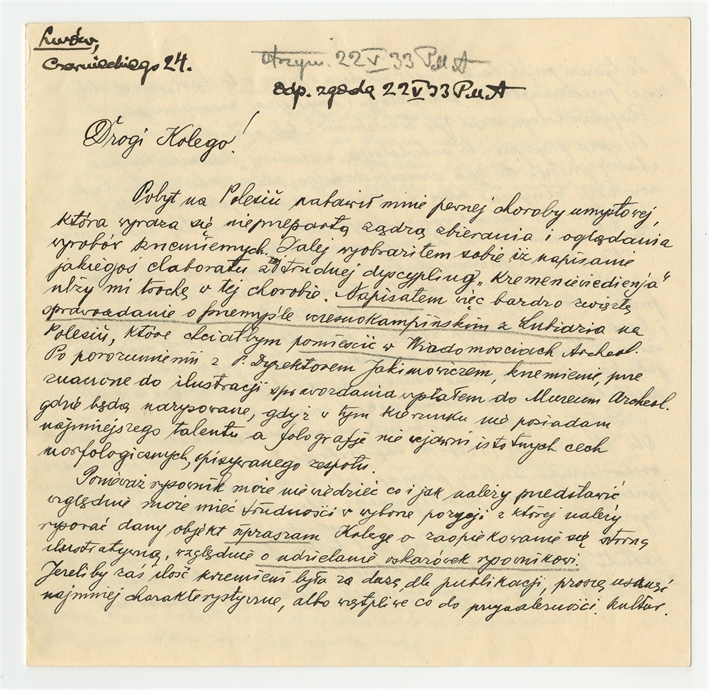 Lwów,
Czarnieckiego 24.
otrzym. 22 V 33 PMA
odp. zgodą 22 V 33 PMA
Drogi Kolego!
Pobyt na Polesiu nabawił mnie pewnej choroby umysłowej,
która wyraża się nieprzepartą żądzą zbierania i oglądania
wyrobów krzemiennych. Dalej wyobraziłem sobie iż napisanie
jakiegoś elaboratu z trudnej dyscypliny „Kremenieviedienja"
ulży mi trochę w tej chorobie. Napisałem więc bardzo zwięzłe
sprawozdanie o przemyśle wczesnokampińskim z Lubiazia na
Polesiu, które chciałbym pomieścić w Wiadomościach Archeol.
Po porozumieniu z P. Dyrektorem Jakimowiczem, krzemienie, prze
znaczone do ilustracji sprawozdania wysłałem do Muzeum Archeol.
gdzie będą narysowane, gdyż w tym kierunku nie posiadam
najmniejszego talentu a fotografje nie wyjawni istotnych cech
morfologicznych, opisywanego zespołu.
Ponieważ rysownik może nie wiedzieć co i jak należy przedstawić
względnie może mieć trudności w wyborze pozycji z której należy
rysować dany objekt upraszam Kolegę o zaopiekowanie się stroną
ilustratywną, względnie o udzielanie wskazówek rysownikowi.
Jeżeliby zaś ilość krzemieni była za dużą dla publikacji, proszę usunąć
najmniej charakterystyczne, albo wątpliwe co do przynależności kultur.